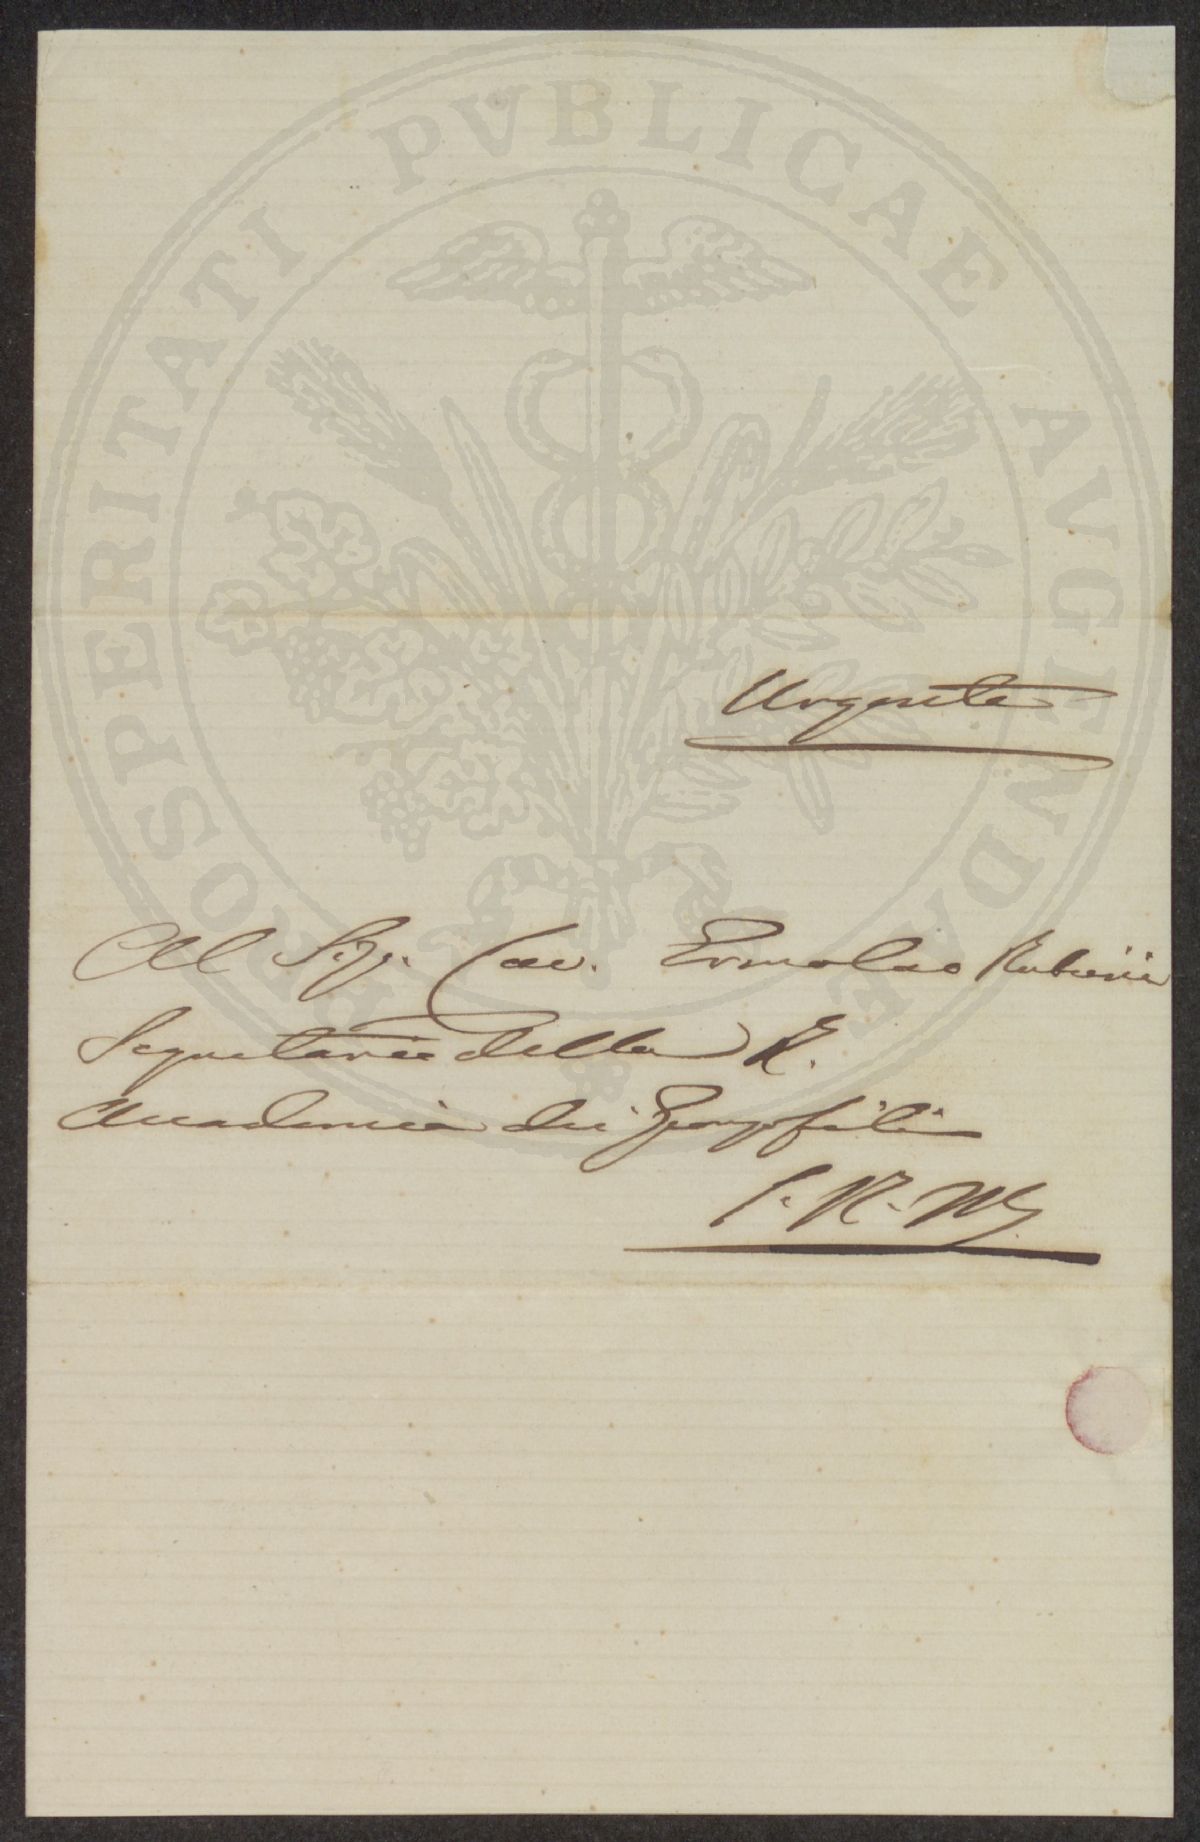 PROSPERITATI PVBLICAE AVGENDAE
Urgente
Al Sig. Cav. Ermolao Rubieri
Segretario della R.
Accademia dei Georgofili
S. R. M.